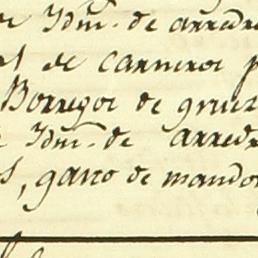 Ydm. de arredro
de carneros p
Borregos de grues
Ydm. de arredr
s, gano de mandon